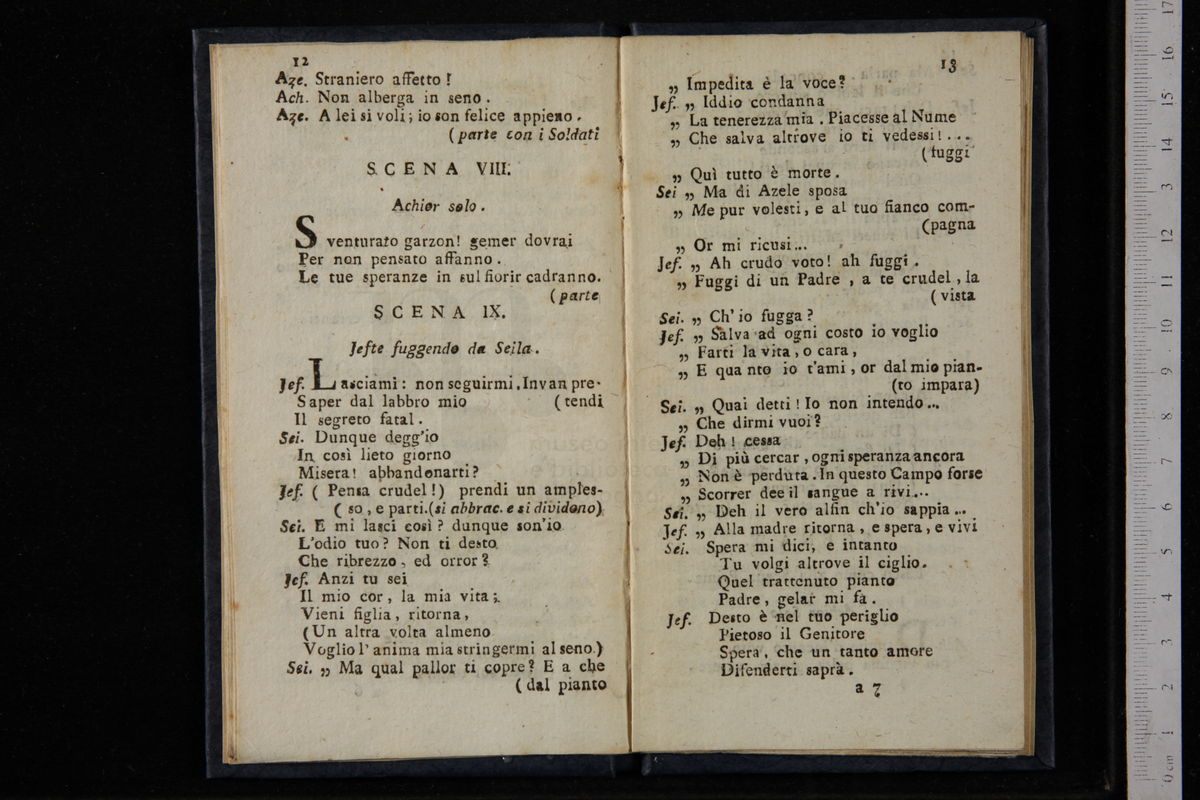 12
Aze. Straniero affetto!
Ach. Non alberga in seno.
Aze. A lei si voli; io son felice appieno.
(parte con i Soldati
SCENA VIII.
Achior solo.
Sventurato garzon! gemer dovrai
Per non pensato affanno.
Le tue speranze in sul fiorir cadranno.
(parte
SCENA IX.
Jefte fuggendo da Seila.
Jef. Lasciami: non seguirmi. Invan pre-
Saper dal labbro mio (tendi
Il segreto fatal.
Sei. Dunque degg'io
In così lieto giorno
Misera! abbandonarti?
Jef. (Pensa crudel!) prendi un amples-
(so, e parti. (si abbrac. e si dividono)
Sei. E mi lasci così? dunque son'io
L'odio tuo? Non ti desto
Che ribrezzo, ed orror?
Jef. Anzi tu sei
Il mio cor, la mia vita;
Vieni figlia, ritorna,
(Un altra volta almeno
Voglio l'anima mia stringermi al seno.)
Sei. „ Ma qual pallor ti copre? E a che
(dal pianto
13
„ Impedita è la voce?
Jef. „ Iddio condanna
„ La tenerezza mia. Piacesse al Nume
„ Che salva altrove io ti vedessi!...
(fuggi
„ Quì tutto è morte.
Sei „ Ma di Azele sposa
„ Me pur volesti, e al tuo fianco com-
(pagna
„ Or mi ricusi...
Jef. „ Ah crudo voto! ah fuggi.
„ Fuggi di un Padre, a te crudel, la
(vista
Sei. „ Ch'io fugga?
Jef. „ Salva ad ogni costo io voglio
„ Farti la vita, o cara,
„ E qua nto io t'ami, or dal mio pian-
(to impara)
Sei. „ Quai detti! Io non intendo...
„ Che dirmi vuoi?
Jef. Deh! cessa
„ Di più cercar, ogni speranza ancora
„ Non è perduta. In questo Campo forse
„ Scorrer dee il sangue a rivi...
Sei. „ Deh il vero alfin ch'io sappia...
Jef. „ Alla madre ritorna, e spera, e vivi
Sei. Spera mi dici, e intanto
Tu volgi altrove il ciglio.
Quel trattenuto pianto
Padre, gelar mi fa.
Jef. Desto è nel tuo periglio
Pietoso il Genitore
Spera, che un tanto amore
Difenderti saprà.
a 7